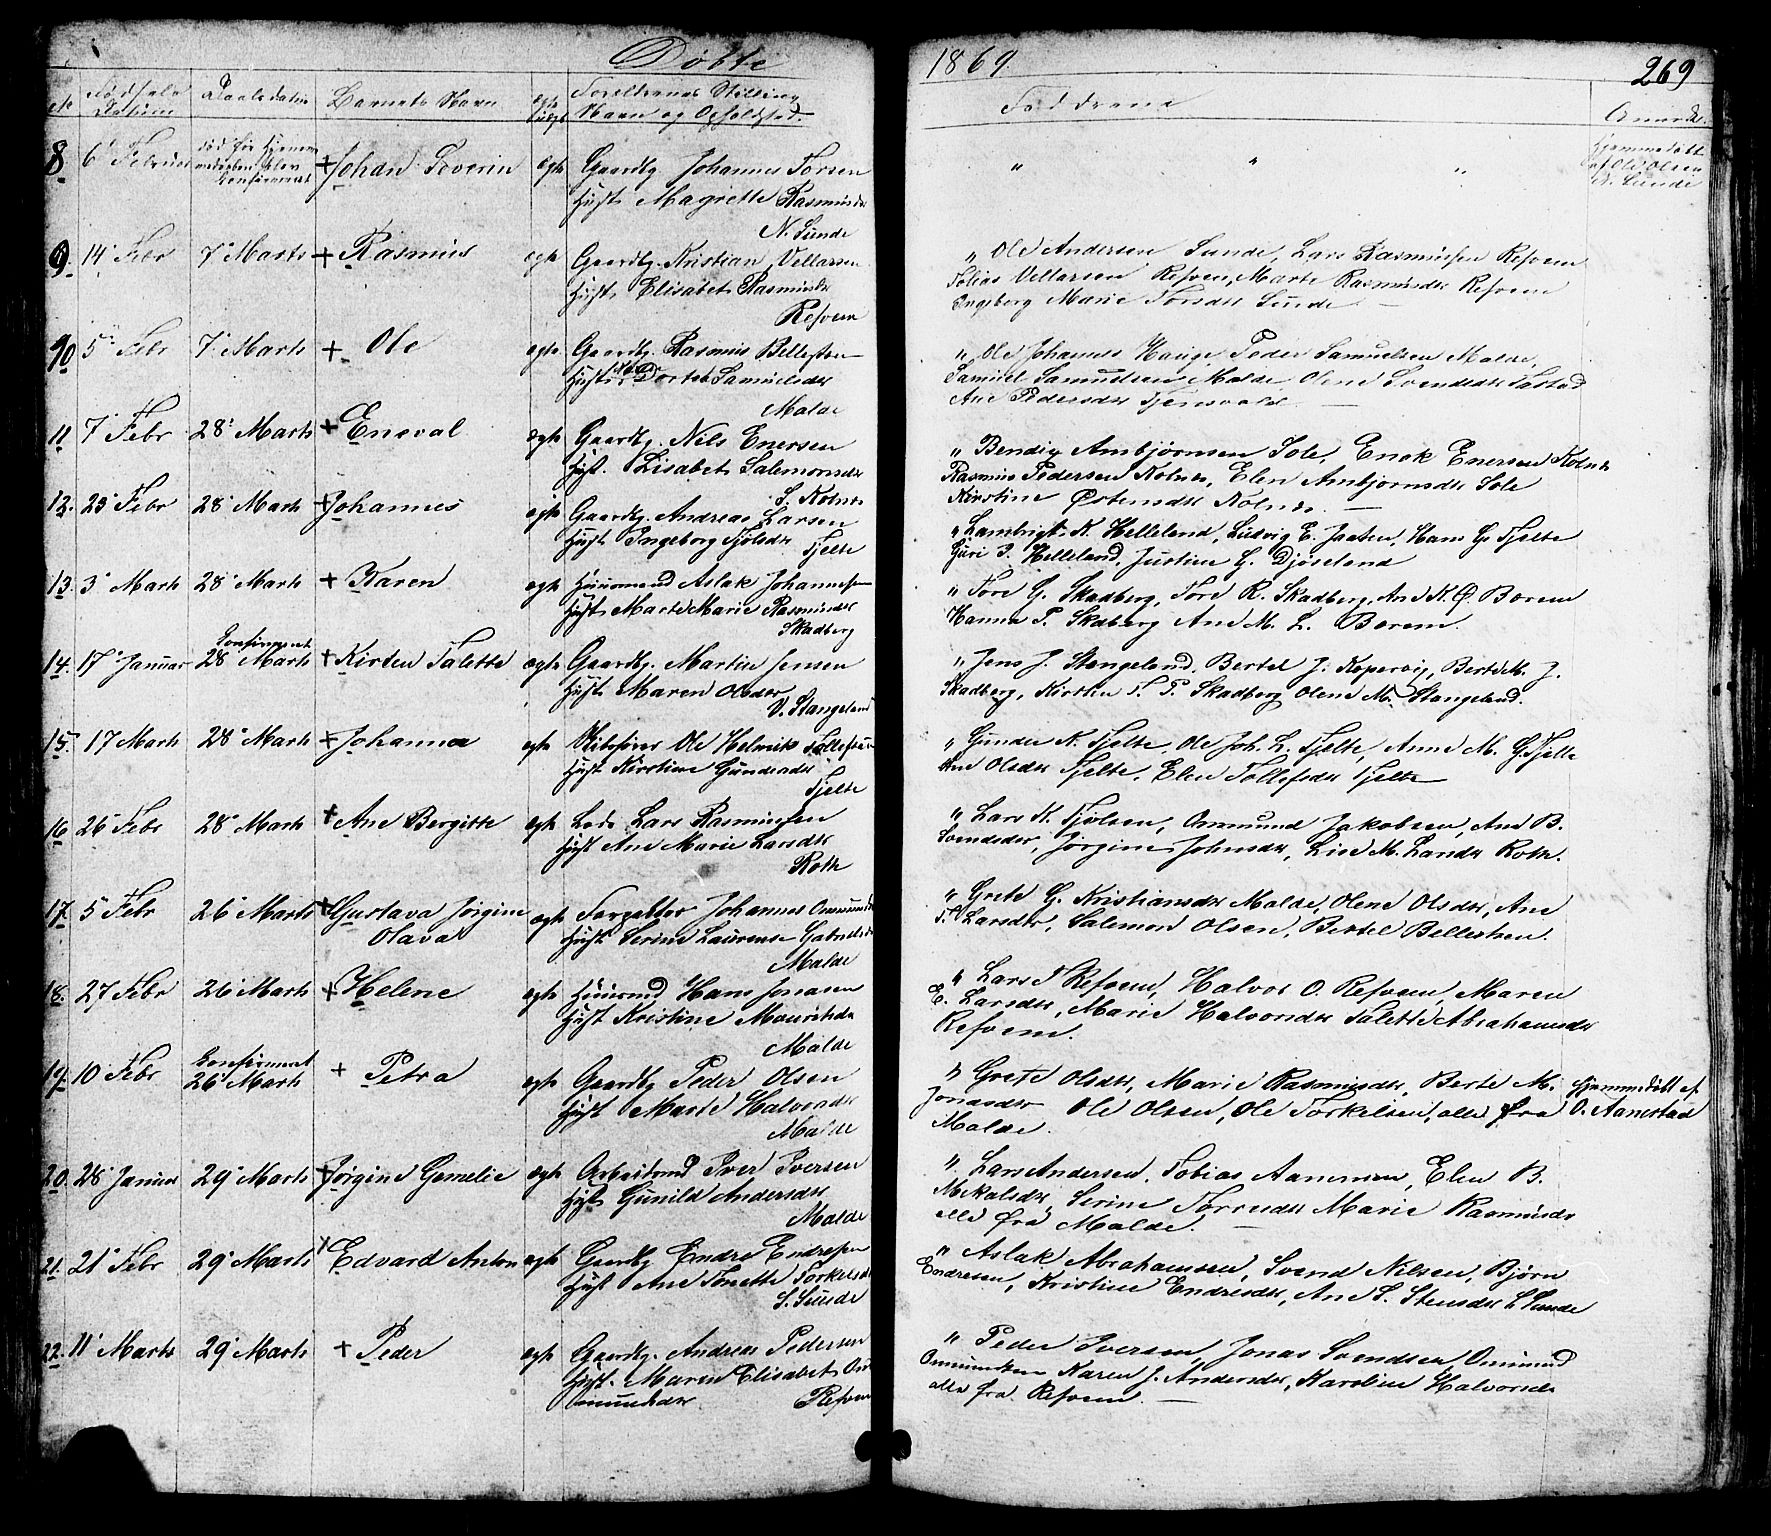 Döbte
1869.
269
No Födsels Datum
Daabs datum
Barnets Navn
ægte uægte
Foreldrenes Stilling
Navn og Opholdsted.
Fadderne
Anmærk.
8 6 Februar död för Hjemmedaaben blev konfirmeret + Johan Severin ægte Gaardbg Johannes Torsen
Hust Magrette Rasmusdr
N. Sunde
" " "
Hjemmedöbt
af Ole Olsen
N. Sunde
9. 14 Febr 7 Marts + Rasmus ægte Gaardbg. Kristian Vellasen
Hust. Elisabet Rasmusdr
Refvem
" Ole Andersen Sunde, Lars Rasmussen Refvem
Tobias Vellasen Refvem, Marte Rasmusdr Refvem
Ingeborg Marie Torsdr Sunde
10 5 Febr 7 Marts + Ole ægte Gaardbg. Rasmus Bellesen
Hust. Dortea Samuelsdr
Malde
" Ole Johannes Hauge Peder Samuelsen Malde,
Samuel Samuelsen Malde Olene Svendsdr Tastad
Ane Pedersdr Tjensvold
11 7 Febr 28 Marts + Eneval ægte Gaardbg. Nils Enersen
Hust. Lisabet Salemonsdr
S. Kolnes
" Bendix Ambjörnsen Sole, Enok Enersen Kolnes
Rasmus Pedersen Kolnes, Elen Ambjörnsdr Sole
Kirstine Östensdr Kolnes.
12. 23 Febr 28 Marts + Johannes ægte Gaardbg. Andreas Larsen
Hust Ingeborg Tjölsdr
Tjelte
" Lambrigt K. Helleland, Ludvig E. Jaaten, Hans G. Tjelte
Guri I. Helleland, Justine G. Djöseland
13. 3 Marts 28 Marts + Karen ægte Huusmand Aslak Johannesen
Hust Marte Marie Rasmusdr
Skadberg
" Tore G. Skadberg, Tore R. Skadberg, Ane K. O. Borem
Hanna T. Skadberg Ane M. L. Borem.
14. 17 Januar konfirmeret 28 Marts + Kirsten Talette ægte Gaardbg. Martin Jensen
Hust Maren Olsdr
V. Stangeland
" Jens J. Stangeland, Bertel J. Kopervig, Berte M. J.
Skadberg, Kirsten T. P. Skadberg Olene M. Stangeland.
15. 17 Marts 28 Marts + Johanna ægte Skibsförer Ole Helmik Tollefsen
Hust Kirstine Gundersdr
Tjelte
" Gunder K. Tjelte, Ole Joh. L. Tjelte, Anne M. G. Tjelte
Ane Olsdr Tjelte, Elen Tollefsdr Tjelte
16 26 Febr 28 Marts + Ane Bergitte ægte Lods Lars Rasmussen
Hust Ane Marie Larsdr
Roth
" Lars K. Tjölsen, Ommund Jakobsen, Ane B.
Svendsdr, Jörgine Johnsdr, Lise M. Larsdr Roth.
17. 5 Febr 26 Marts + Gustava Jörgine
Olava ægte Forpakter Johannes Ommundsen
Hust Serine Laurense Gabrielsdr
Malde
" Grete G. Kristiansdr Malde, Olene Olsdr, Ane
T. Larsdr, Salemon Olsen, Bertel Bellesen.
18. 27 Febr 26 Marts + Helene ægte Huusmd Hans Jonasen
Hust Kristine Mauritsdr
Malde
" Lars I Refvem, Halvor O. Refvem, Maren
E. Larsdr, Marie Halvorsdr Talette Abrahamsdr
Refvem.
19. 10 Febr Konfirmeret 26 Marts + Petra ægte Gaardbg Peder Olsen
Hust Marte Halvorsdr
Malde
" Grete Olsdr, Marie Rasmusdr, Berte M.
Jonasdr Ole Olsen, Ole Torkelsen, alle fra
Malde.
Hjemmedöbt af
O. Aanestad
20. 28 Januar 29 Marts + Jörgine Gemelie ægte Arbeidsmd Iver Iversen
Hust Gunild Andersdr
Malde
" Lars Andersen, Tobias Aanensen, Elen B.
Mikalsdr, Serine Torresdr Marie Rasmusdr
alle fra Malde.
21. 21 Febr 29 Marts + Edvard Anton ægte Gaardbg Endre Endresen
Hust Ane Tonette Torkelsdr
S. Sunde
" Aslak Abrahamsen, Svend Nilsen, Björn
Endresen, Kristine Endresdr, Ane S. Stensdr S. Sunde
22. 11 Marts 29 Marts + Peder ægte Gaardbg. Andreas Pedersen
Hust. Maren Elisabet Om
mundsdr Refvem
" Peder Iversen, Jonas Svendsen, Ommund
Ommundsen Karen J. Andersdr, Karoline Halvorsdr
alle fra Refvem.